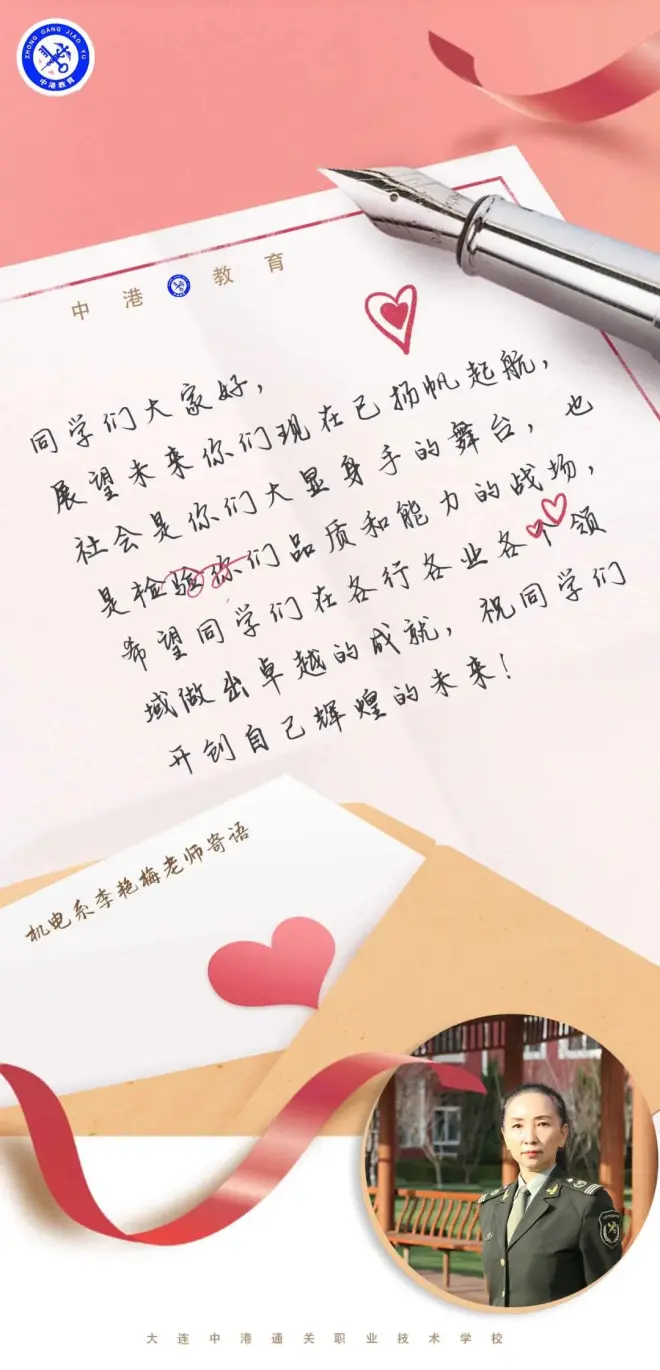 ZHONG GANG JIAO YU
中港教育
中港 教育
同学们大家好，
展望未来你们现在已扬帆起航，
社会是你们大显身手的舞台，也
是检验你们品质和能力的战场，
希望同学们在各行各业各个领
域做出卓越的成就，祝同学们
开创自己辉煌的未来！
机电系李艳梅老师寄语
大连中港通关职业技术学校